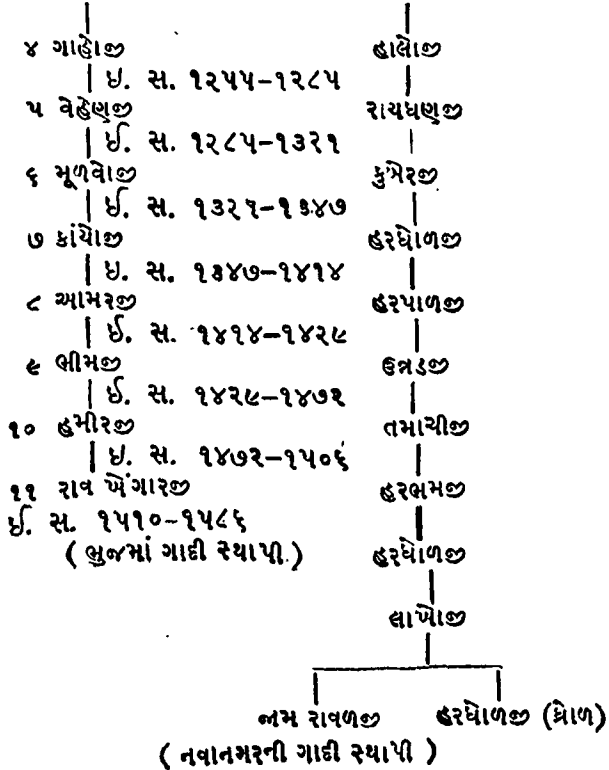 ૪ ગાહોજી
ઇ. સ. ૧૨૫૫-૧૨૮૫
૫ વેહેણજી
ઈ. સ. ૧૨૮૫-૧૩૨૧
૬ મૂળવોજી
ઈ. સ. ૧૩૨૧-૧૩૪૭
૭ કાંયોજી
ઇ. સ. ૧૩૪૭-૧૪૧૪
૮ આમરજી
ઈ. સ. ૧૪૧૪-૧૪૨૯
૯ ભીમજી
ઈ. સ. ૧૪૨૯-૧૪૭૨
૧૦ હમીરજી
ઇ. સ. ૧૪૭૨-૧૫૦૬
૧૧ રાવ ખેંગારજી
ઈ. સ. ૧૫૧૦-૧૫૮૬
( ભુજમાં ગાદી સ્થાપી. )
હાલોજી
રાયધણજી
કુબેરજી
હરધોળજી
હરપાળજી
ઉન્નડજી
તમાચીજી
હરભમજી
હરધોળજી
લાખોજી
જામ રાવળજી
( નવાનગરની ગાદી સ્થાપી )
હરધોળજી (ધ્રોળ)